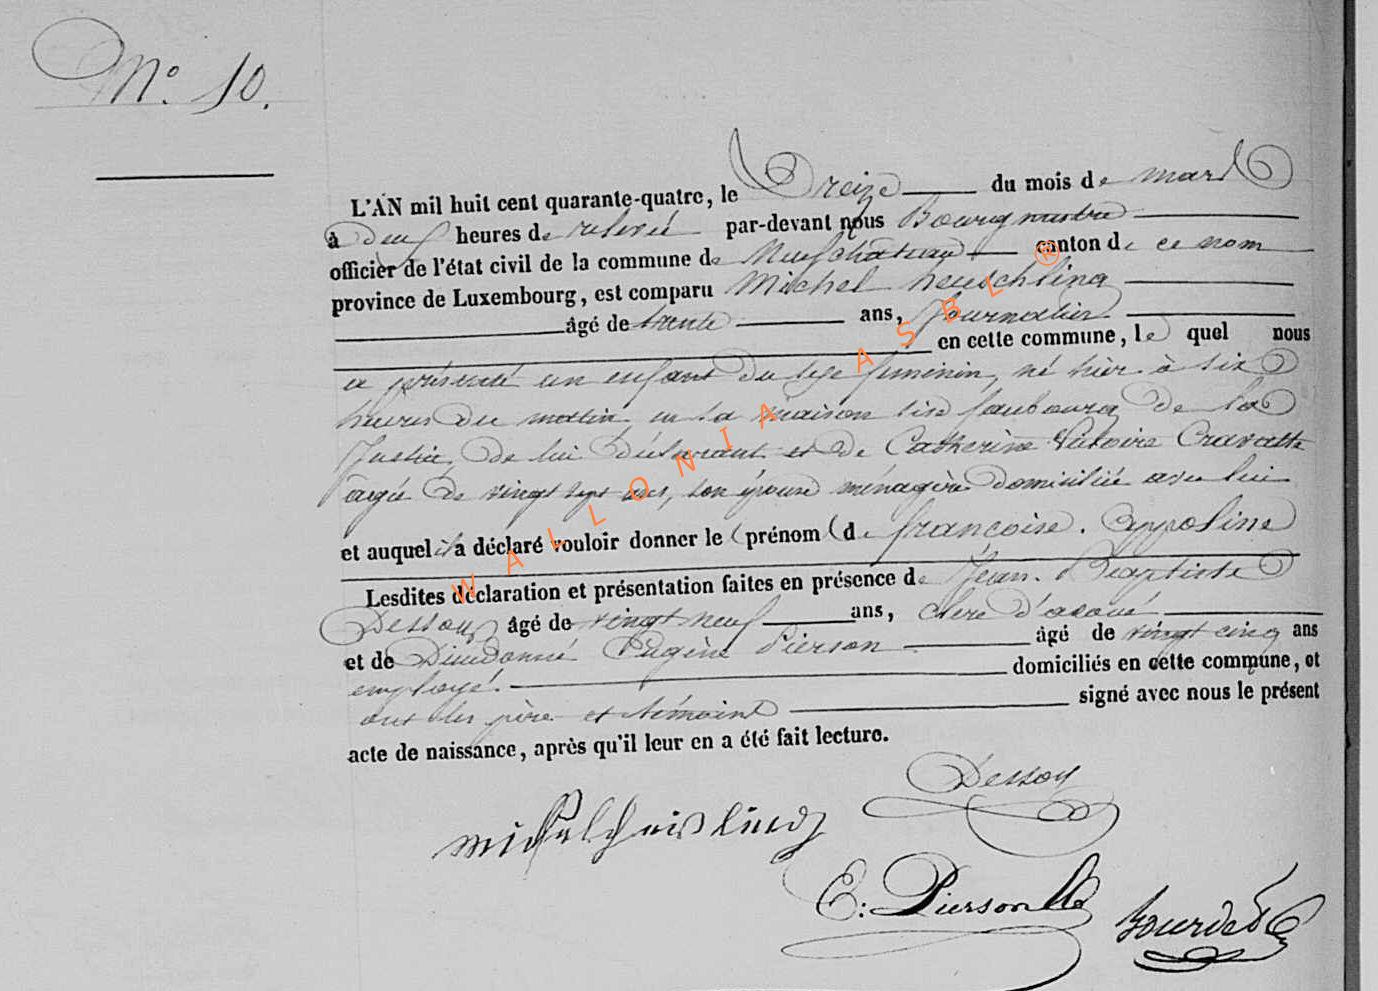 N° 10.
L'AN mil huit cent quarante-quatre, le Treize du mois de mars
à deux heures de relevée par-devant nous Bourgmestre
officier de l'état civil de la commune de Neufchateau canton de ce nom
province de Luxembourg, est comparu Michel heuschling
âgé de trente ans, Journalier
en cette commune, le quel nous
a présenté un enfant du sexe feminin, né hier à six
heures du matin en sa maison sise faubourg de la
Justice, de lui déclarant et de Catherine Victoire Cravatte
agée de vingt sept ans, son épouse ménagère domiciliée avec lui
et auquel il a déclaré vouloir donner les prénoms de françoise. Appoline
Lesdites déclaration et présentation faites en présence de Jean. Baptiste
Dessoy âgé de vingt neuf ans, clerc d'avoué
et de Dieudonné Eugène Pierson âgé de vingt cinq ans
employé. domiciliés en cette commune, et
ont les père et témoins signé avec nous le présent
acte de naissance, après qu'il leur en a été fait lecture.
Dessoy
E: Pierson
Bourdet
WALLONIA ASBL ®